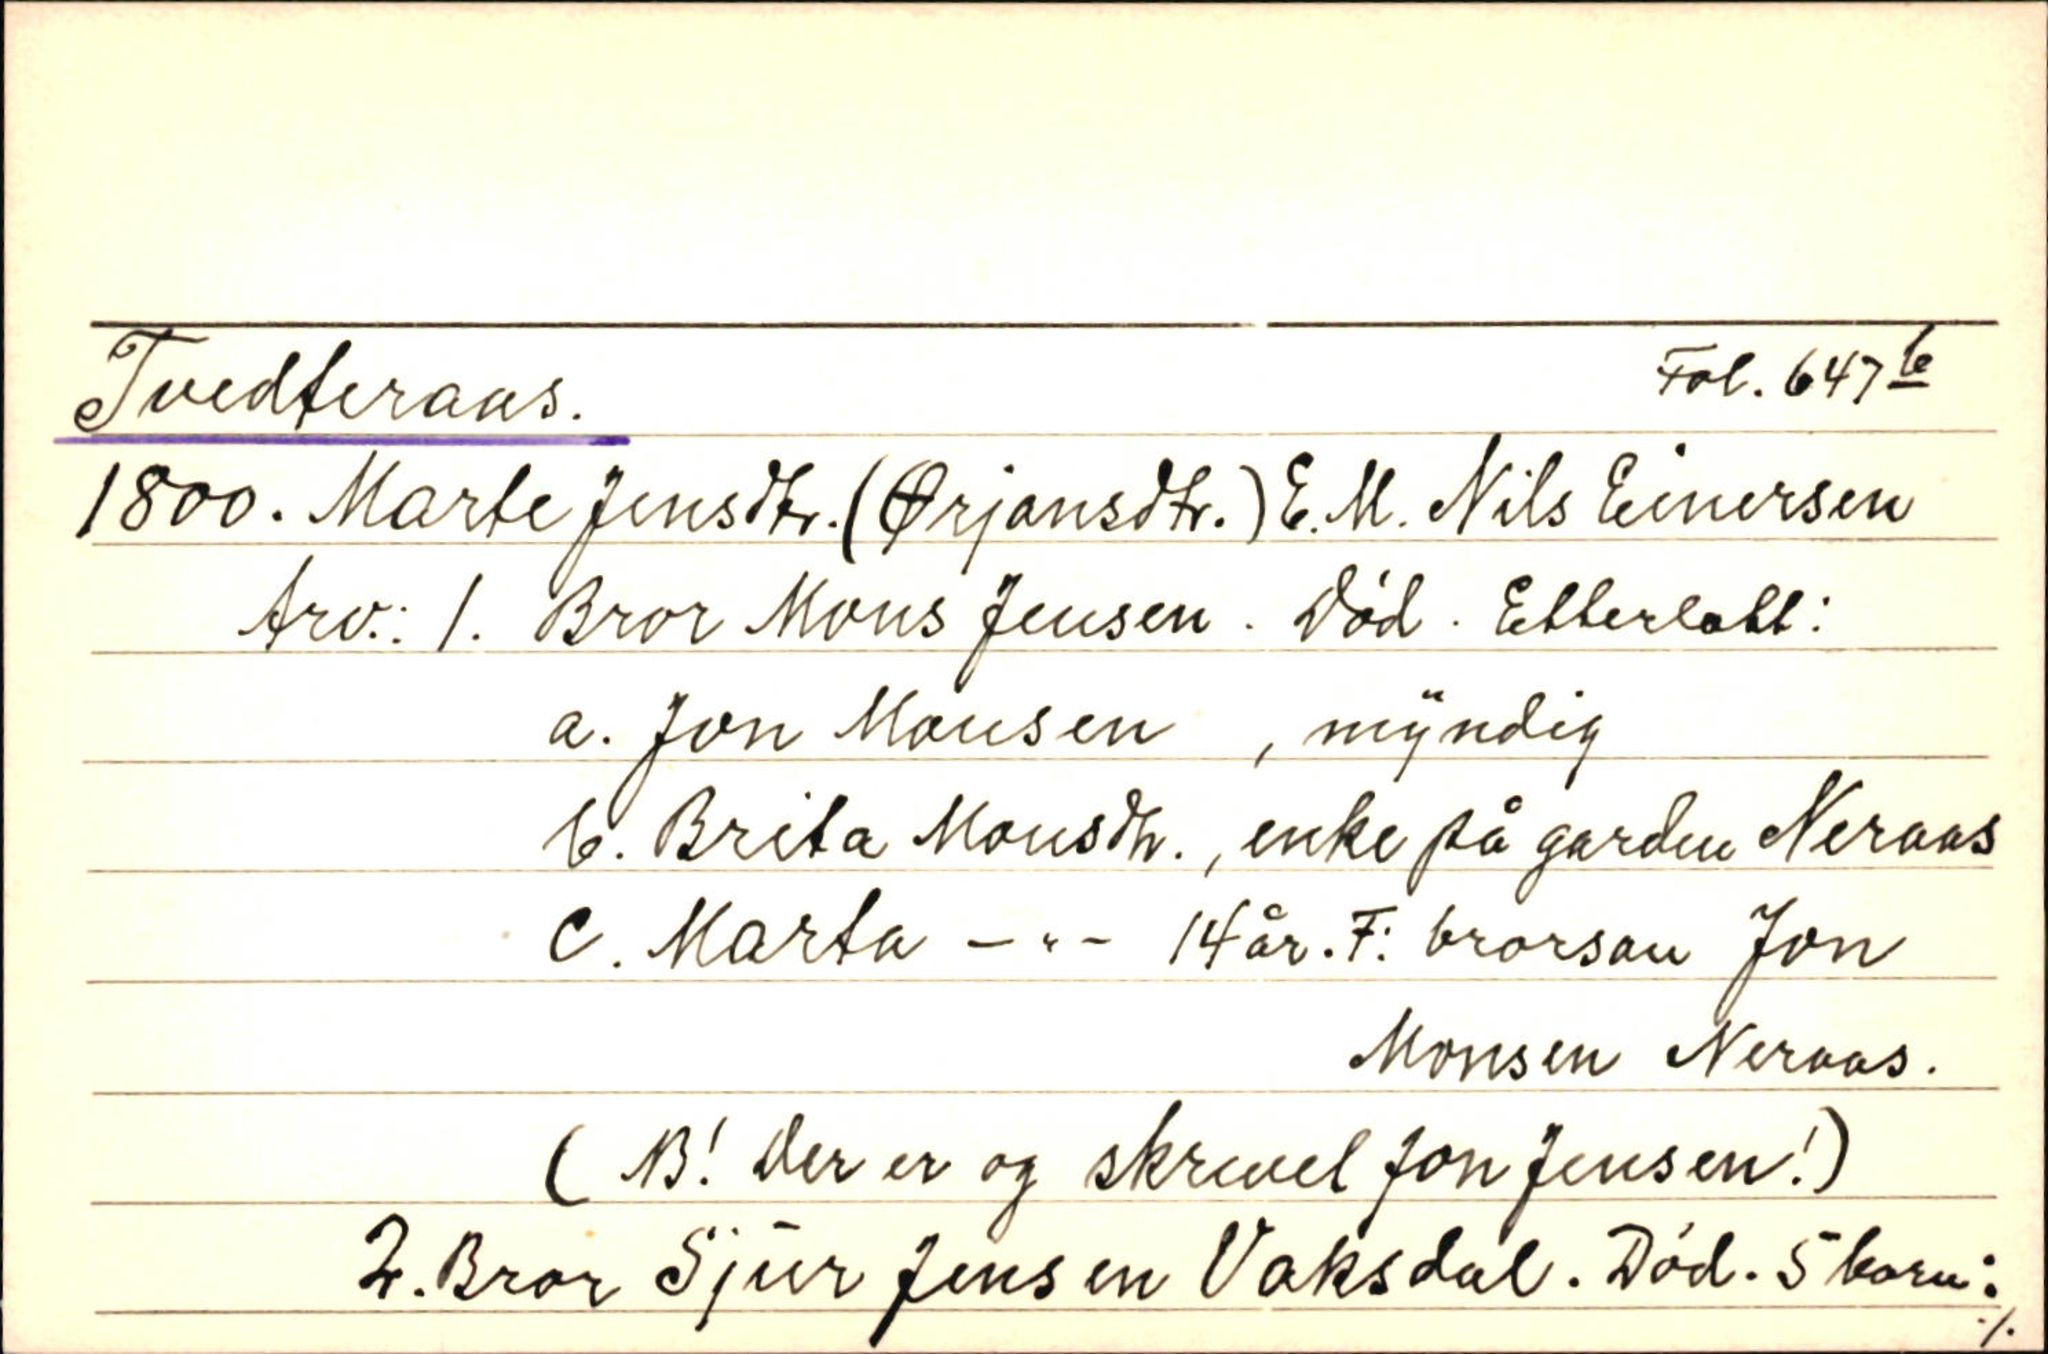 Tvedteraas. Fol. 647 b
1800. Marte Jensdtr. (Ørjansdtr.) E. M. Nils Einersen
Arv.: 1. Bror Mons Jensen. Død. Etterlatt:
a. Jon Monsen , myndig
b. Brita Monsdtr., enke på garden Neraas
c. Marta – " – 14 år. F: brorson Jon
Monsen Neraas.
(NB! Der er og skrevet Jon Jensen!)
2. Bror Sjur Jensen Vaksdal. Død. 5 born:
./.